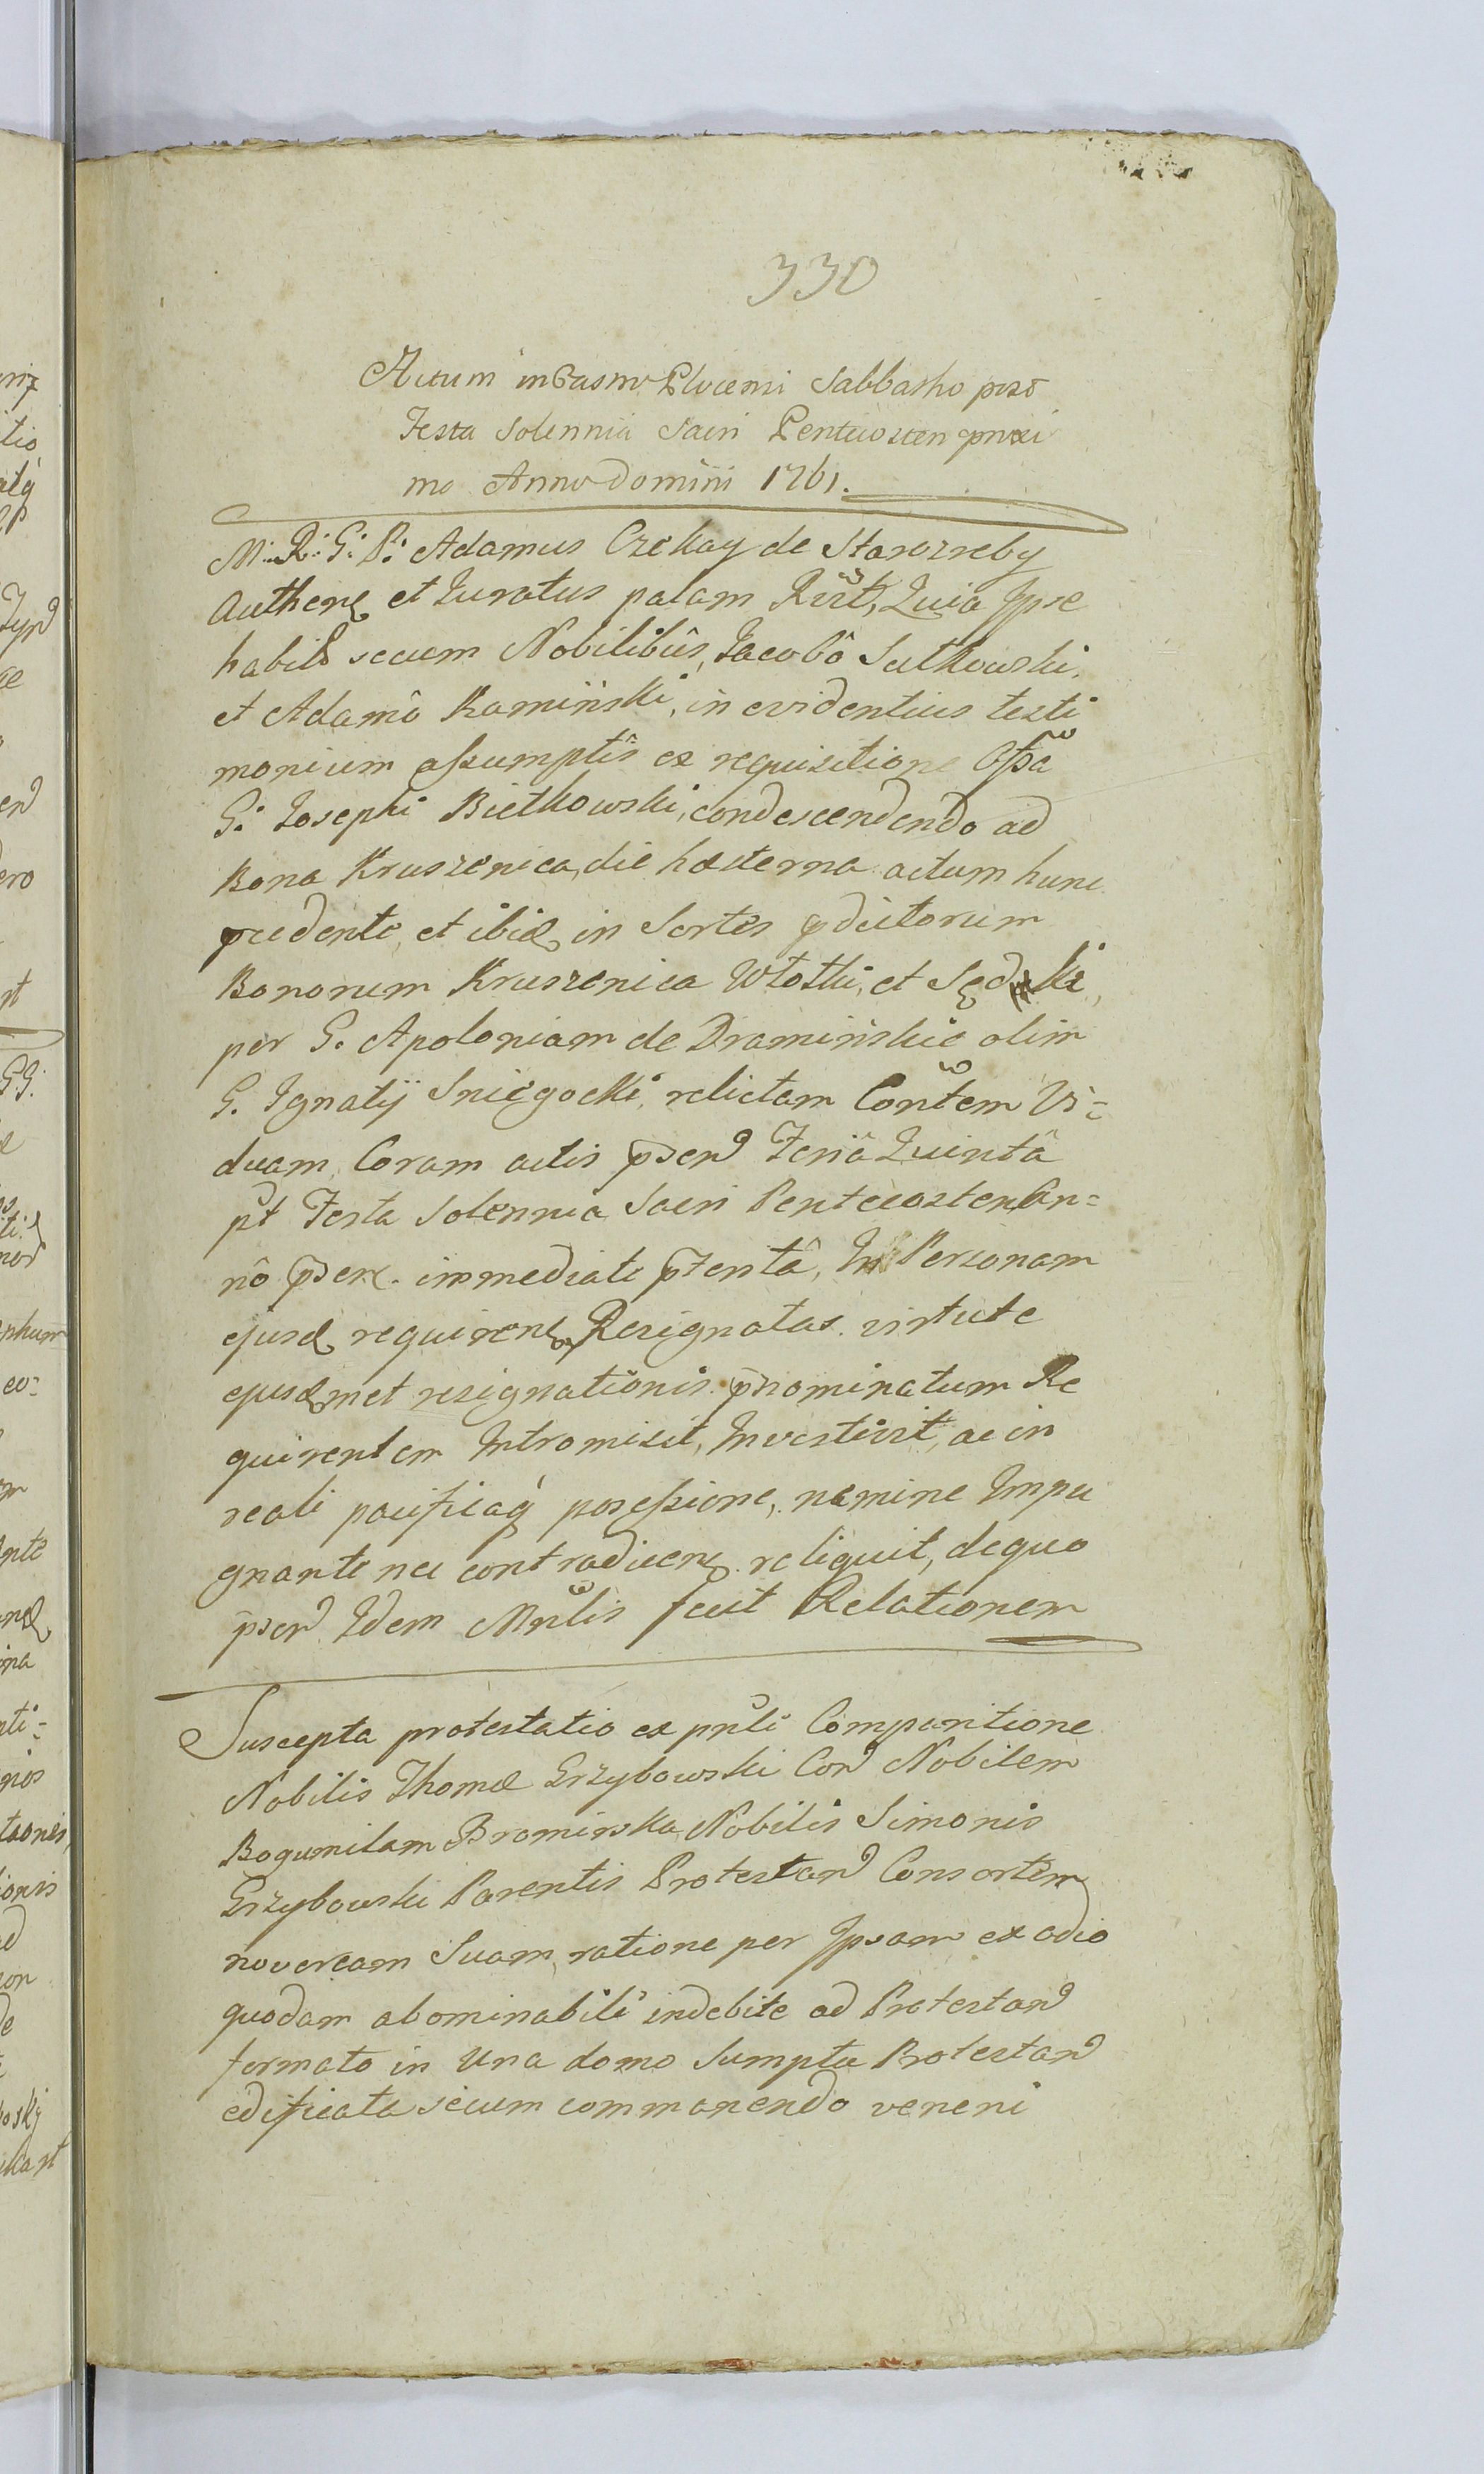 330
Actum in Castro Plocensi Sabbatho post
Festa Solennia Sacri Pentecosten proxi
mo Anno Domini 1761.
M: R: G: P: Adamus Czekay de Starozreby
Authenq et Juratus palam Rēūt, Quia Ipse
habitis secum Nobilibûs, Jacobô Sutkowski,
et Adamô Kamiński, in evidentius testi
monium assumptîs ex requisitione
G: Josephi Bietkowski, condescendendo ad
Bona Kruszenica, die hesterna actum hunc
pcedente, et ibid, in Sortes pdictorum
Bonorum Kruszenica Włostki, et
per G. Apoloniam de Dramińskie olim
G. Ignatij Sniegocki, relictam Coñtem Vi=
duam, Coram actis psen Feriâ Quintâ
pt Festa Solennia Sacri Pentecosten An=
nô psen. immediate pteritâ, In Personam
ejusd requiren Resignatas. virtute
ejusdmet resignationis pnominatum Re
quirentem Intromisit, Investivit, ac in
reali pacificaq possessione, nemine Impu
gnante nec contradicen reliquit, de quo
psen Idem Mnlis fecit Relationem
Suscepta protestatio ex pnli Comparitione
Nobilis Thomæ Grzybowski Con Nobilem
Bogumilam Bromirska Nobilis Simonis
Grzybowski Parentis Protestan Consortem
novercam Suam, ratione per Ipsam ex odio
quodam abominabili indebite ad Protestan
formato in Una domo Sumptu Protestan
edificata secum commanendo veneni